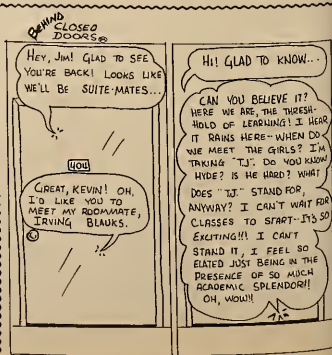 BEHIND
CLOSED
DOORS®
HEY, JIM! GLAD TO SEE
YOU'RE BACK! LOOKS LIKE
WE'LL BE SUITE-MATES...
404
GREAT, KEVIN! OH,
I'D LIKE YOU TO
MEET MY ROOMMATE,
IRVING BLAUKS.
HI! GLAD TO KNOW...
CAN YOU BELIEVE IT?
HERE WE ARE, THE THRESH-
HOLD OF LEARNING! I HEAR
IT RAINS HERE--WHEN DO
WE MEET THE GIRLS? I'M
TAKING "T.J." DO YOU KNOW
HYDE? IS HE HARD? WHAT
DOES "T.J." STAND FOR,
ANYWAY? I CAN'T WAIT FOR
CLASSES TO START--IT'S SO
EXCITING!!! I CAN'T
STAND IT, I FEEL SO
ELATED JUST BEING IN THE
PRESENCE OF SO MUCH
ACADEMIC SPLENDOR!!
OH, WOW!!